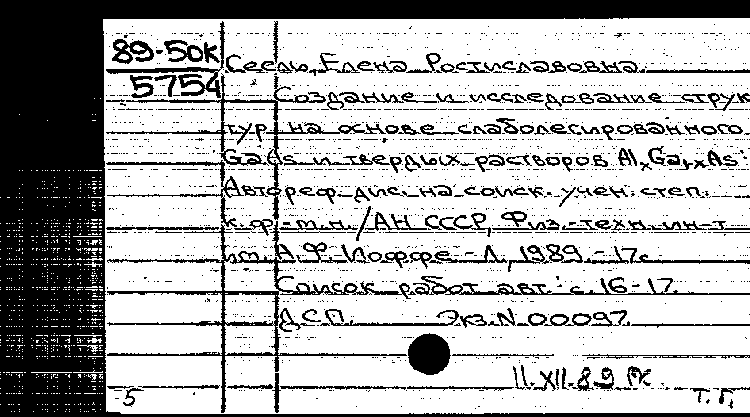 89-50К
5754
Сеель, Елена Ростиславовна.
Создание и исследование струк
тур на основе слаболегированного
GaAs и твердых растворов AlₓGa₁₋ₓAs:
Автореф. дис. на соиск. учен. степ.
к.ф.-м.н. / АН СССР, Физ.-техн. ин-т
им. А.Ф. Иоффе - Л., 1989. - 17с.
Список работ авт.: с. 16-17.
ДСП. Экз. N 00097.
11.XII.89
5 Т. Г.